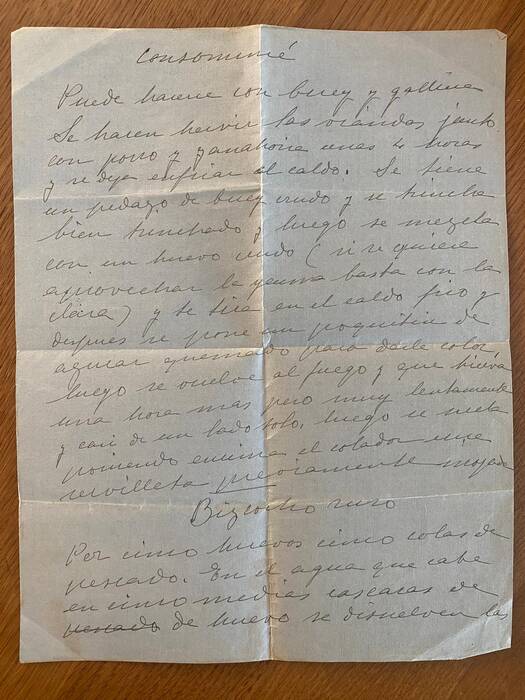 Consommé
Puede hacerse con buey y gallina
Se hacen hervir las viandas junto
con porro y zanahoria unas 4 horas
y se deja enfriar el caldo. Se tiene
un pedazo de buey crudo y se trincha
bien trinchado y luego se mezcla
con un huevo crudo (si se quiere
aprovechar la yema basta con la
clara) y se tira en el caldo frio y
despues se pone un poquitin de
azucar quemado para darle color
luego se vuelve al fuego y que hierva
una hora mas pero muy lentamente
y casi de un lado solo, luego se cuela
poniendo encima el colador una
servilleta previamente mojada
Bizcocho ruso
Por cinco huevos cinco colas de
pescado. En el agua que cabe
en cinco medias cascaras de
pescado de huevo se disuelven las